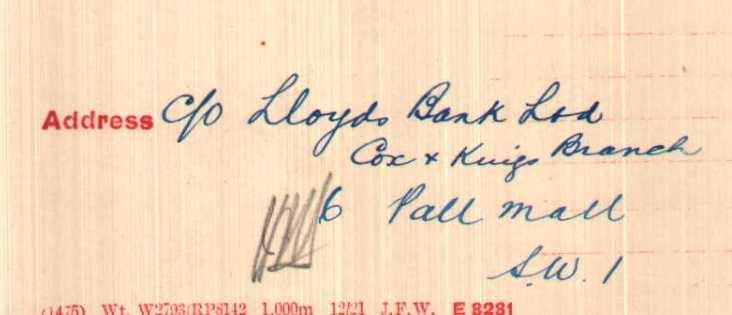 Address C/O Lloyds Bank Ltd
Cox & Kings Branch
6 Pall Mall
S.W. 1
(1475) Wt. W2793/RP8142 1,000m 12/21 J.F.W. E 8281